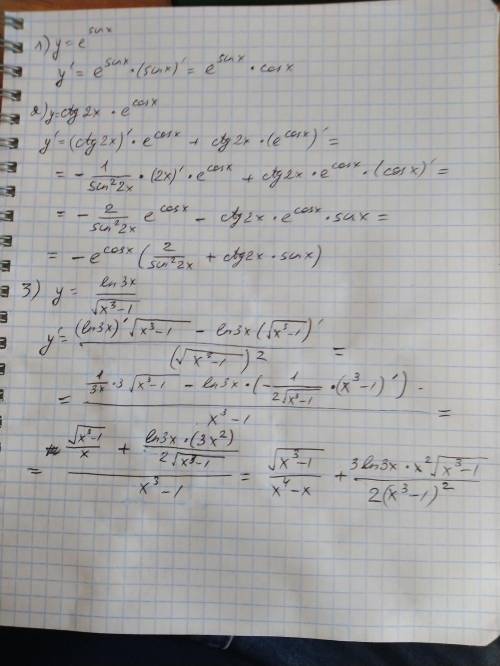 1) y = e^sinx
y' = e^sinx · (sinx)' = e^sinx · cosx
2) y = ctg2x · e^cosx
y' = (ctg2x)' · e^cosx + ctg2x · (e^cosx)' =
= - 1/sin²2x · (2x)' · e^cosx + ctg2x · e^cosx · (cosx)' =
= - 2/sin²2x e^cosx - ctg2x · e^cosx · sinx =
= -e^cosx (2/sin²2x + ctg2x · sinx)
3) y = ln3x/√(x³-1)
y' = ((ln3x)' √(x³-1) - ln3x (√(x³-1))')/(√(x³-1))² =
= (1/3x · 3 √(x³-1) - ln3x · (- 1/2√(x³-1) · (x³-1)'))/(x³-1) =
= (√(x³-1)/x + ln3x · (3x²)/2√(x³-1))/(x³-1) = √(x³-1)/(x⁴-x) + 3ln3x · x² √(x³-1)/2(x³-1)²